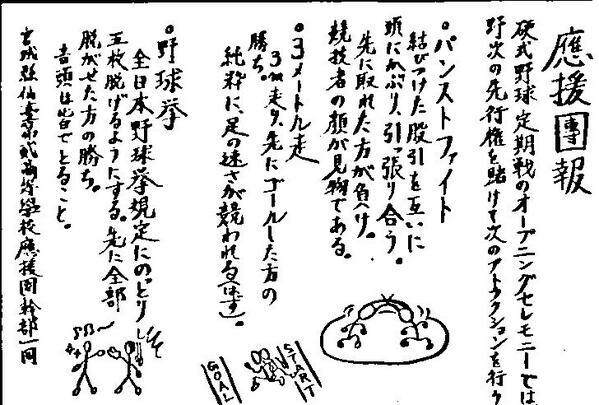 應援團報
硬式野球定期戦のオープニングセレモニーでは
野次の先行権を賭けて次のアトラクションを行う
•パンストファイト
結びつけた股引を互いに
頭にかぶり、引っ張り合う。
先に取れた方が負け。
競技者の顔が見物である。
•3メートル走
3m走り、先にゴールした方の
勝ち。
純粋に、足の速さが競われる(はず)。
•野球拳
全日本野球拳規定にのっとり
五枚脱げるようにする。先に全部
脱がせた方の勝ち。
音頭は皆でとること。
宮城縣仙臺
高等學校應援團幹部一同
START
GOAL